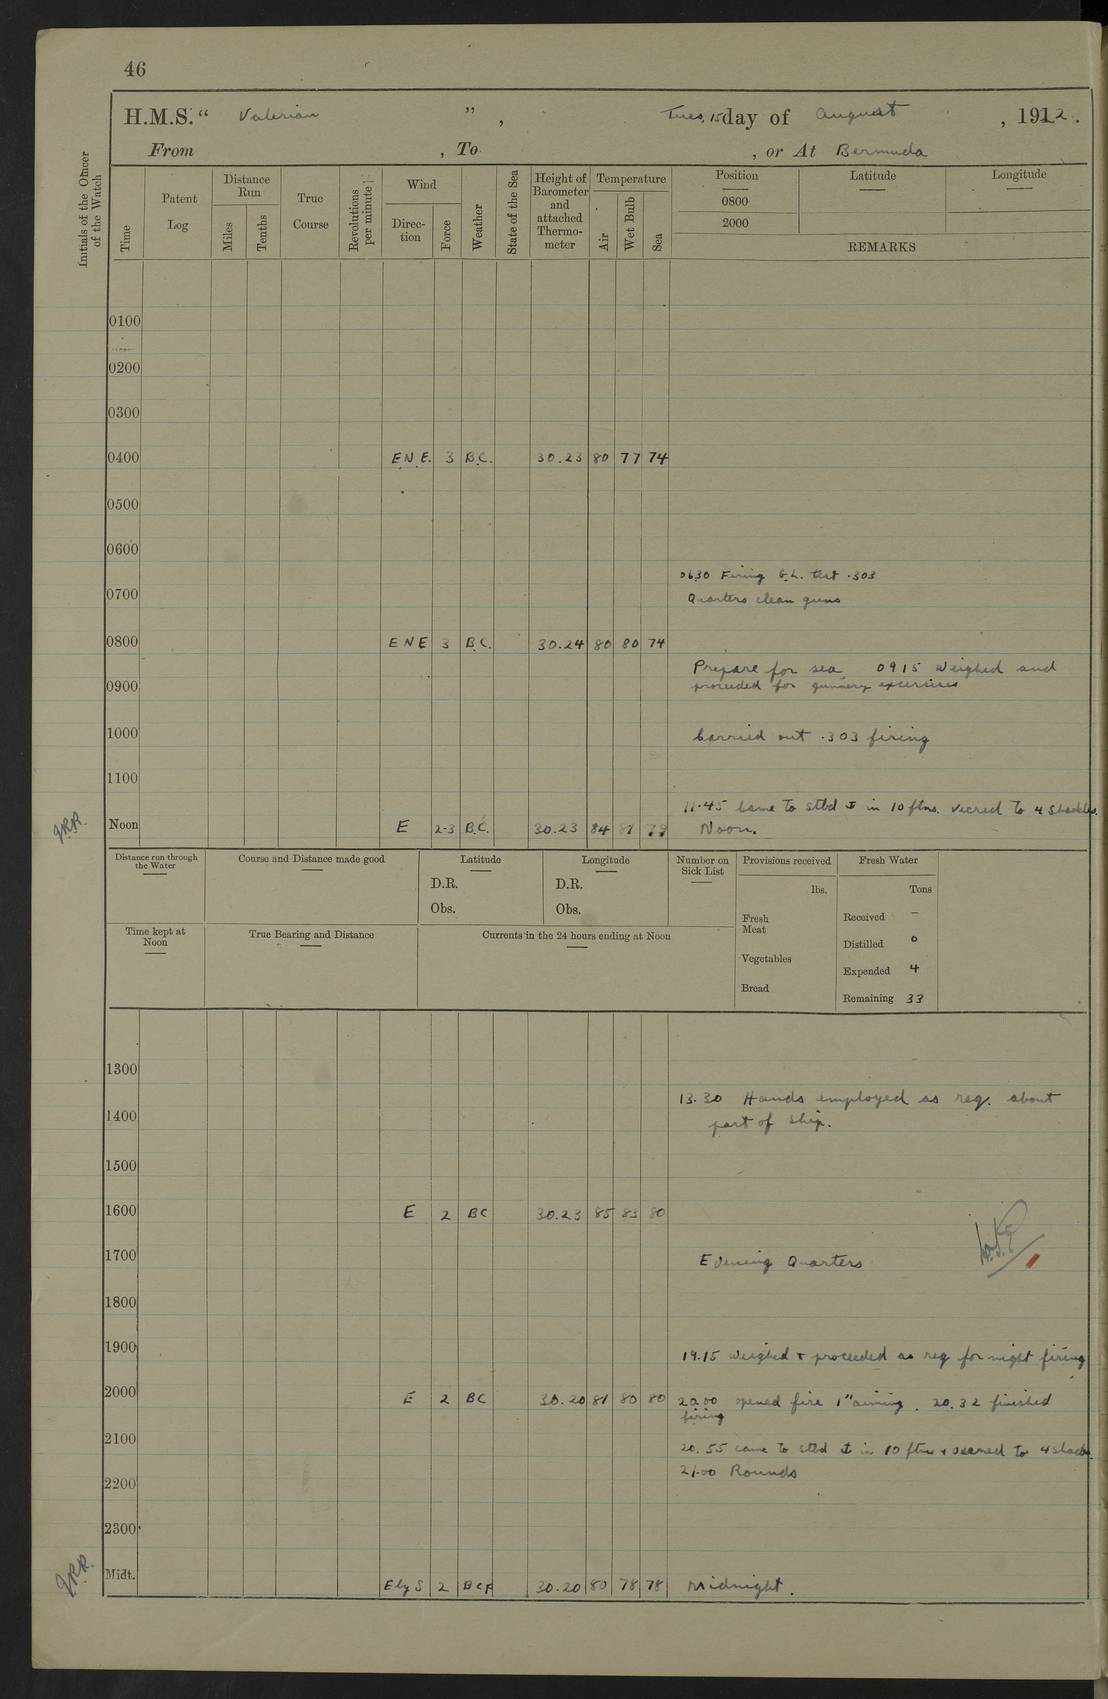 46
H.M.S. “ Valerian ” , Tues, 15 day of August , 1922.
From , To , or At Bermuda
Initials of the Officer of the Watch
Time
Patent Log
Distance Run
Miles
Tenths
True Course
Revolutions per minute
Wind
Direc-tion
Force
Weather
State of the Sea
Height of Barometer and attached Thermo-meter
Temperature
Air
Wet Bulb
Sea
Position
Latitude
Longitude
0800
2000
REMARKS
0100
0200
0300
0400 E.N.E. 3 B.C. 30.23 80 77 74
0500
0600
0630 Firing G.L. test .303
0700 Quarters clean guns
0800 E N E 3 B.C. 30.24 80 80 74
Prepare for sea 0915 Weighed and
0900 proceeded for gunnery excersises
1000 Carried out .303 firing
1100
11.45 Came to stbd ⚓ in 10 ftms. veered to 4 shackles.
J.R.R. Noon E 2-3 B.C. 30.23 84 81 79 Noon.
Distance run through the Water
Course and Distance made good
Latitude
D.R.
Obs.
Longitude
D.R.
Obs.
Number on Sick List
Provisions received
lbs.
Fresh Meat
Vegetables
Bread
Fresh Water
Tons
Received –
Distilled 0
Expended 4
Remaining 33
Time kept at Noon
True Bearing and Distance
Currents in the 24 hours ending at Noon
1300
13.30 Hands employed as req. about
1400 part of ship.
1500
1600 E 2 BC 30.23 85 83 80
1700 Evening Quarters
1800
1900 19.15 Weighed + proceeded as req for night firing
2000 E 2 BC 30.20 81 80 80 2000 opened fire 1" aiming. 20.32 finished
firing
2100 20.55 came to stbd ⚓ in 10 ftms + veered to 4 shacks.
21.00 Rounds
2200
2300
J.R.R. Midt. Ely S 2 30.20 80 78 78 Midnight.